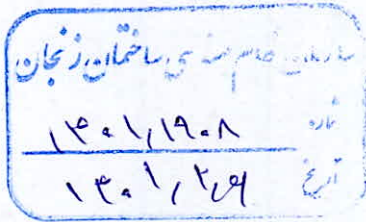 سازمان نظام مهندسی ساختمان زنجان
شماره ۱۴۰۱,۱۹۰۸
تاریخ